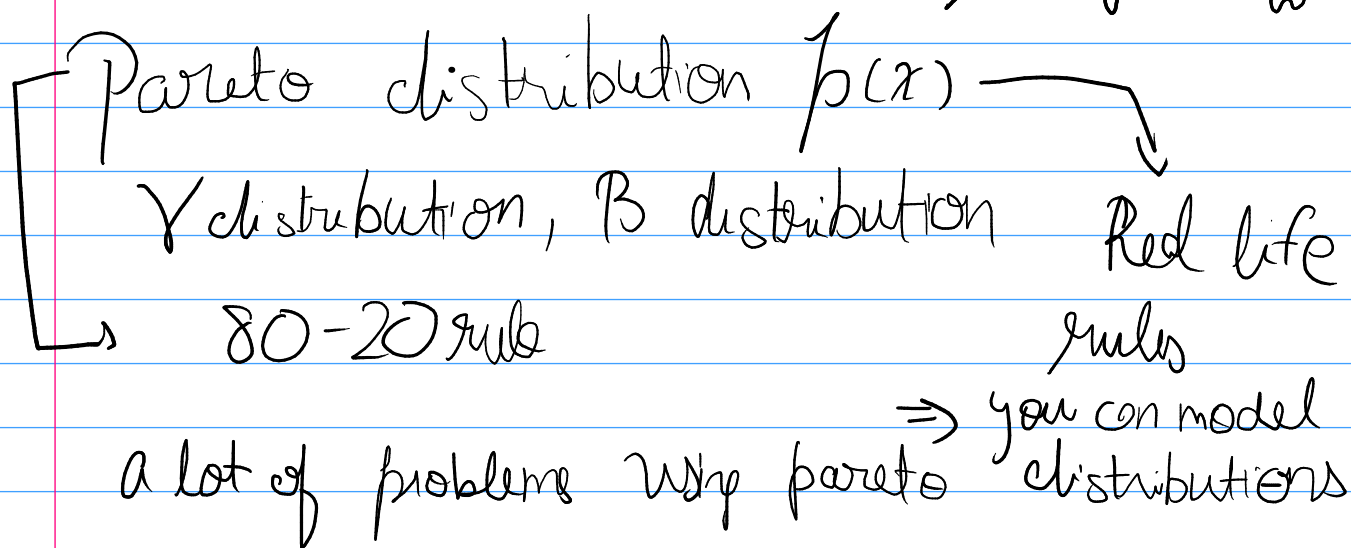 Pareto distribution p(x)
γ distribution, B distribution
Real life
80-20 rule
rules
⇒ you can model
a lot of problems using pareto distributions